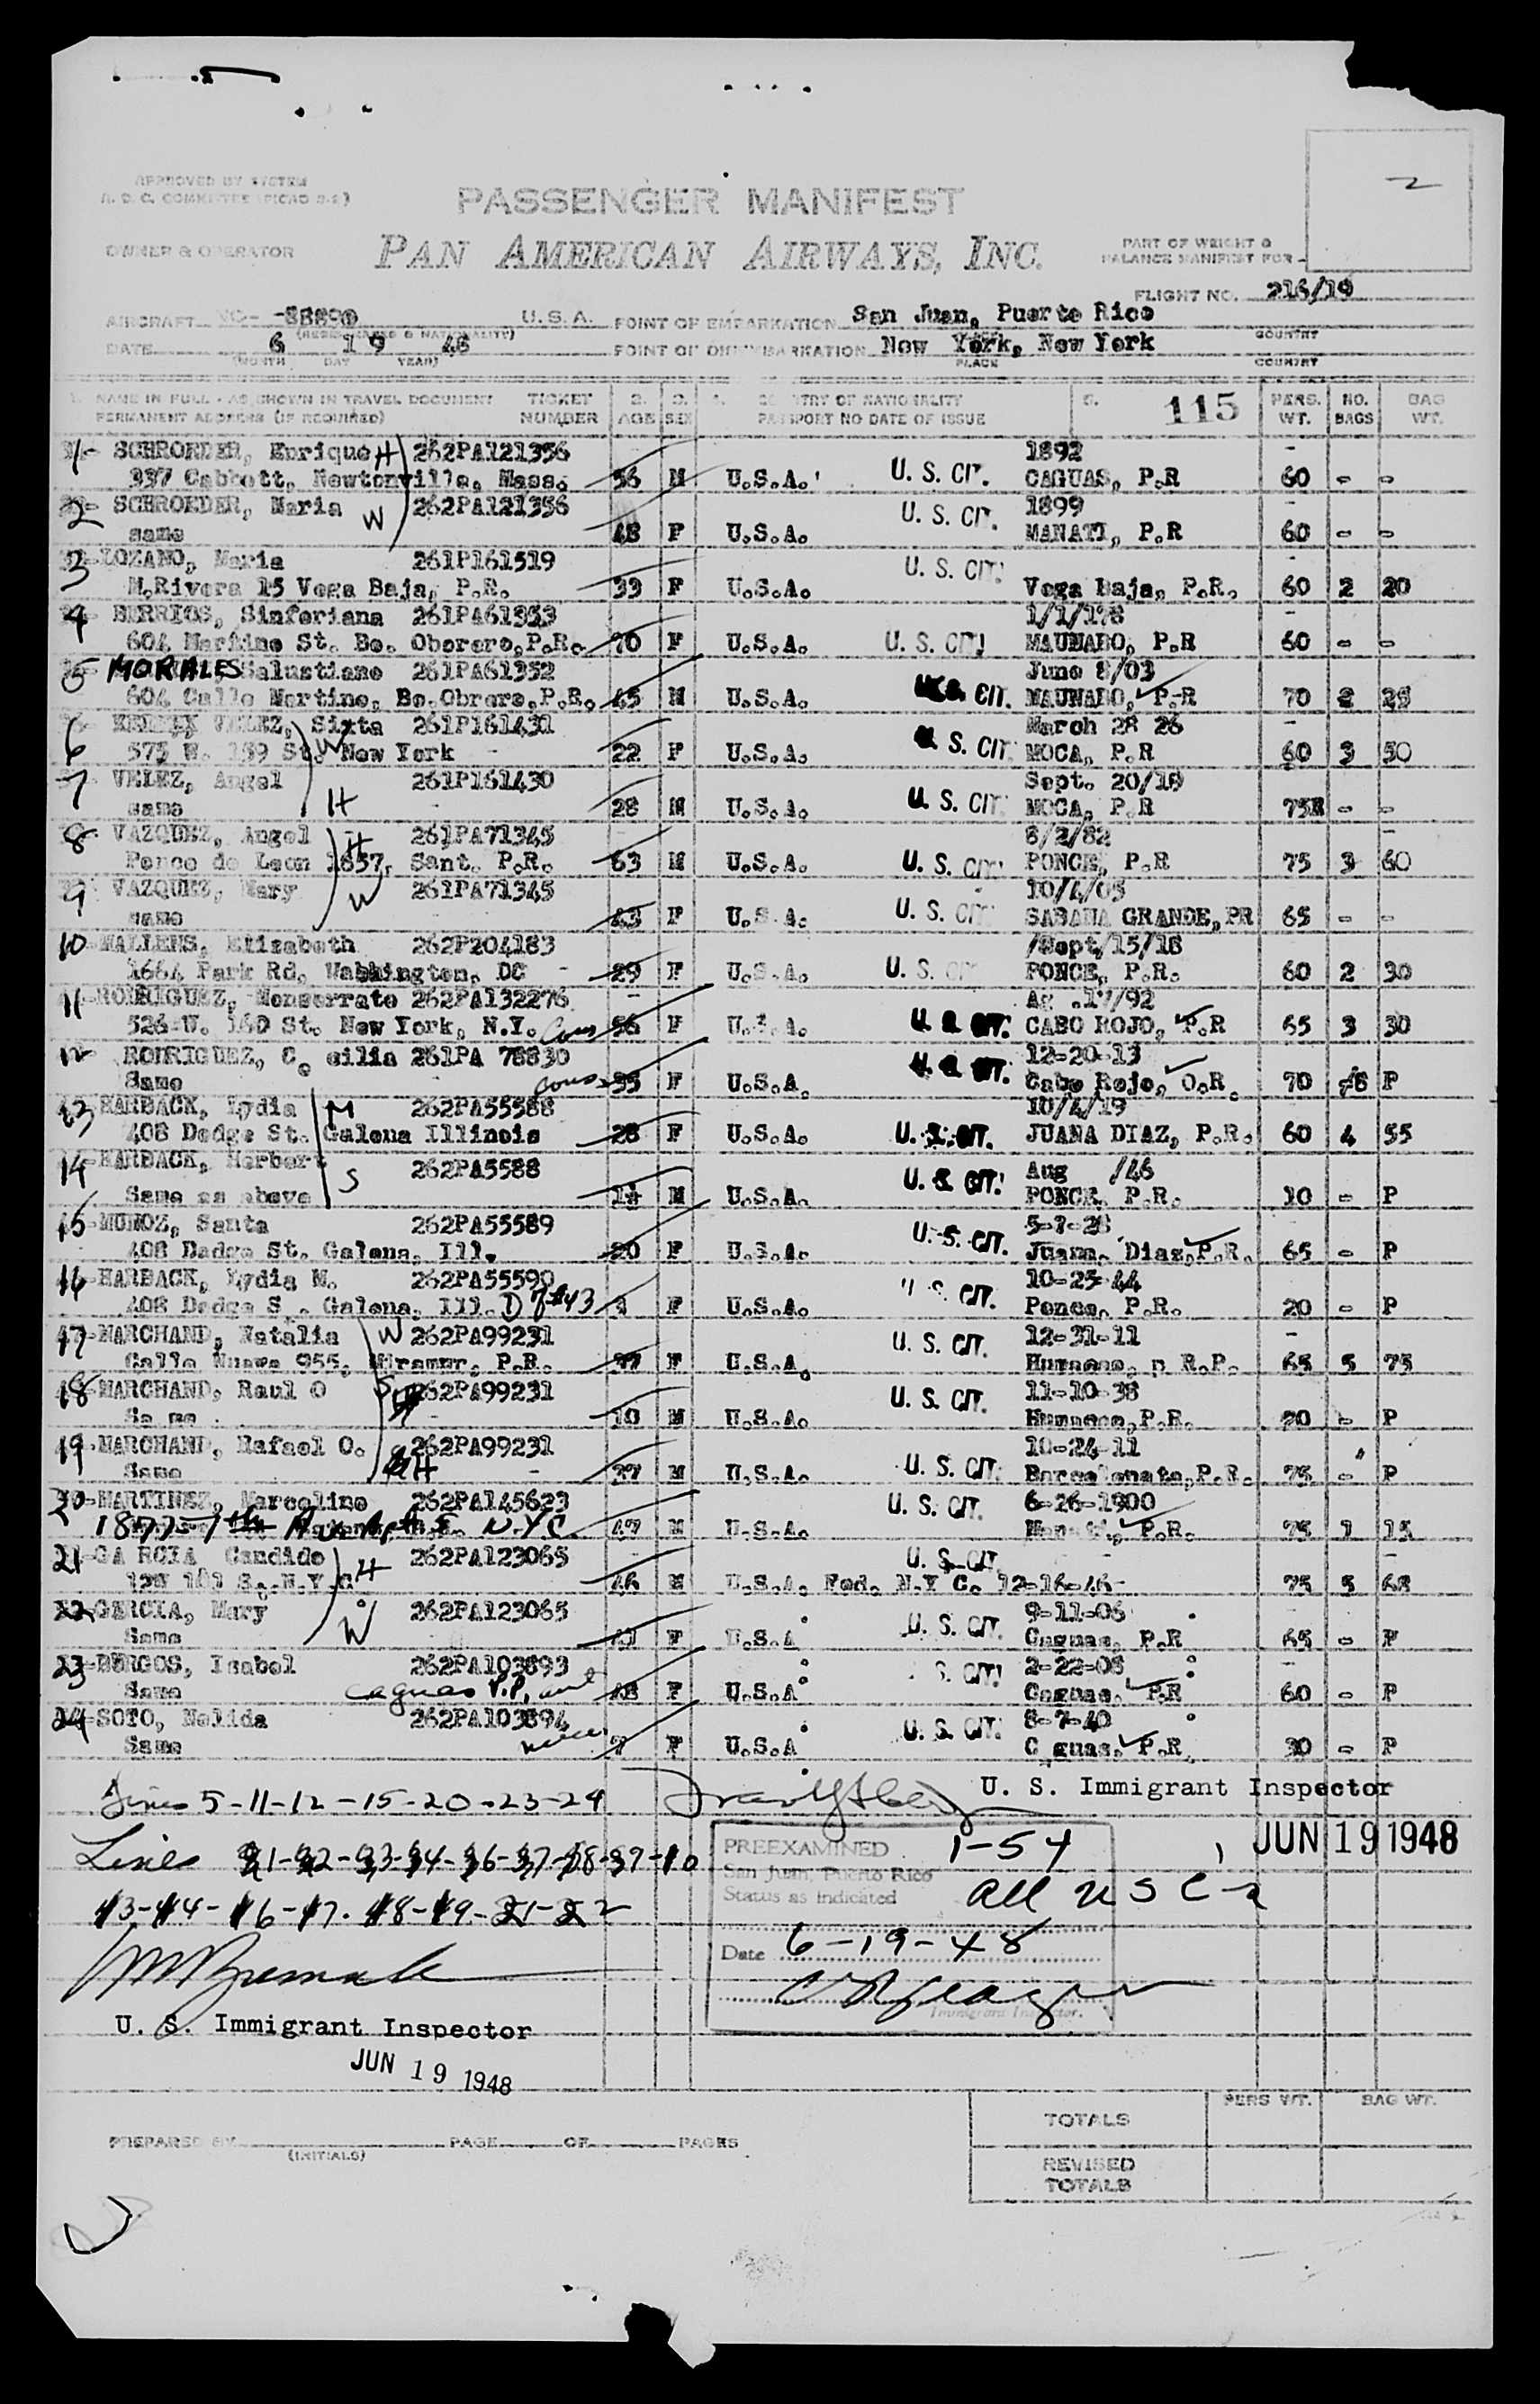 APPROVED BY SYSTEM
PASSENGER MANIFEST
2
OWNER & OPERATOR
PAN AMERICAN AIRWAYS, INC.
PART OF WEIGHT &
BALANCE MANIFEST FOR -
FLIGHT NO. 216/19
AIRCRAFT NC- U.S.A. POINT OF EMBARKATION San Juan, Puerto Rico
COUNTRY
DATE 6 19 48 POINT OF DISEMBARKATION New York, New York
(MONTH DAY YEAR) PLACE COUNTRY
1. NAME IN FULL - AS SHOWN IN TRAVEL DOCUMENT TICKET 2. 3. 4. COUNTRY OF NATIONALITY 5. 115 PERS. NO. BAG
PERMANENT ADDRESS (IF REQUIRED) NUMBER AGE SEX PASSPORT NO DATE OF ISSUE WT. BAGS WT.
1- SCHROEDER, Enrique H 262PA121356 1892 -
337 Cabbott, Newtonville, Mass. 56 M U.S.A. U. S. CIT. CAGUAS, P.R 60 - -
2 SCHROEDER, Maria W 262PA121356 U. S. CIT. 1899 -
same 48 F U.S.A. MANATI, P.R 60 - -
3 LOZANO, Maria 261P161519 U. S. CIT.
M.Rivera 15 Vega Baja, P.R. 33 F U.S.A. Vega Baja, P.R. 60 2 20
4 BERRIOS, Sinforiana 261PA61353 1/1/178 -
604 Martino St. Bo. Oborero, P.R. 70 F U.S.A. U. S. CIT MAUNABO, P.R 60 - -
5 MORALES Salustiano 261PA61352 June 8/03
604 Calle Martino, Bo.Obrero,P.R. 45 M U.S.A. U.S. CIT. MAUNABO, P.R 70 2 25
6 VELEZ, Sixta 261P161431 March 28 26 -
575 W. 159 St. New York W 22 F U.S.A. U. S. CIT. MOCA, P.R 60 3 50
7 VELEZ, Angel 261P161430 Sept. 20/19
same H 28 M U.S.A. U. S. CIT. MOCA, P.R 75 - -
8 VAZQUEZ, Angel 261PA71345 8/2/82 -
Ponce de Leon 1857, Sant. P.R. H 63 M U.S.A. U. S. CIT. PONCE, P.R 75 3 60
9 VAZQUEZ, Mary W 261PA71345 10/4/05
same 43 F U.S.A. U. S. CIT. SABANA GRANDE, PR 65 - -
10 WALLENS, Elizabeth 262P204183 /Sept/15/18
1664 Park Rd, Washington, DC - 29 F U.S.A. U. S. CIT PONCE, P.R. 60 2 30
11 RODRIGUEZ, Monserrate 262PA132276
526 W. 160 St. New York, N.Y. 56 F U.S.A. U. S. CIT. CABO ROJO, P.R 65 3 30
12 RODRIGUEZ, C. cilia 261PA 78830 12-20-13
Same 35 F U.S.A. U. S. CIT. Cabo Rojo, O.R. 70 P
13 HARBACK, Lydia M 262PA55588 10/4/19
408 Dodge St. Galena Illinois 28 F U.S.A. U. S. CIT. JUANA DIAZ, P.R. 60 4 55
14 HARBACK, Herbert S 262PA5588 U. S. CIT. Aug /46
Same as above M U.S.A. PONCE, P.R. 10 - P
15 MUNOZ, Santa 262PA55589 5-7-28
408 Dodge St. Galena, Ill. 20 F U.S.A. U. S. CIT. Juana Diaz, P.R. 65 - P
16 HARBACK, Lydia M. 262PA55590 10-25-44
408 Dodge S . Galena, Ill. F U.S.A. U. S. CIT. Ponce, P.R. 20 - P
17 MARCHAND, Natalia W 262PA99231 12-31-11 -
Calle Nueva 955, Miramar, P.R. F U.S.A. U. S. CIT. 65 5 75
18 MARCHAND, Raul O S 262PA99231 11-10-38
Same 10 M U.S.A. U. S. CIT. Humacao, P.R. 20 - P
19 MARCHAND, Rafael O. 262PA99231 10-24-11
Same H M U.S.A. U. S. CIT. Barceloneta, P.R. 75 - P
20 MARTINEZ, Marcelino 262PA145623 6-26-1900
1877-7th Av. N.Y.C. 47 M U.S.A. U. S. CIT. P.R. 75 1 15
21 GARCIA Candido H 262PA123065 U. S. CIT. -
46 M U.S.A. N.Y C. 12-16-46 75 5 68
22 GERCIA, Mary W 262PA123065 9-11-06
Same F U.S.A U. S. CIT. Caguas, P.R 65 - P
23 BURGOS, Isabel 262PA103893 2-22-08
Same Caguas P.R. aunt F U.S.A S. CIT. Caguas, P.R 60 - P
24 SOTO, Nelida 262PA103894 8-7-40
Same niece 7 F U.S.A U. S. CIT. Caguas, P.R. 30 - P
Lines 5-11-12-15-20-23-24
U. S. Immigrant Inspector
JUN 19 1948
Lines 1-2-3-4-6-7-8-9-10
13-14-16-17-18-19-21-22
PREEXAMINED 1-54
San Juan, Puerto Rico
Status as indicated all USC-2
Date 6-19-48
Immigrant Inspector.
U. S. Immigrant Inspector
JUN 19 1948
TOTALS PERS WT. BAG WT.
PREPARED BY PAGE OF PAGES
(INITIALS)
REVISED
TOTALS